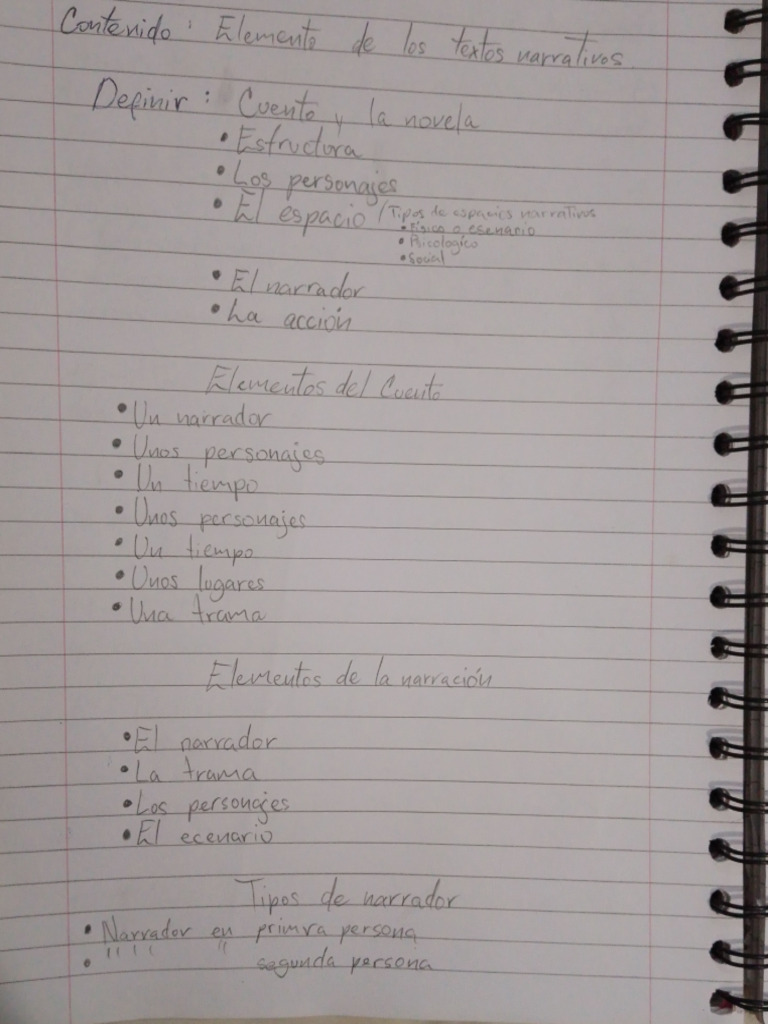 Contenido: Elemento de los textos narrativos
Definir: Cuento y la novela
• Estructura
• Los personajes
• El espacio / Tipos de espacios narrativos
• Fisico o esenario
• Psicologico
• Social
• El narrador
• La acción
Elementos del Cuento
• Un narrador
• Unos personajes
• Un tiempo
• Unos personajes
• Un tiempo
• Unos lugares
• Una trama
Elementos de la narración
• El narrador
• La trama
• Los personajes
• El ecenario
Tipos de narrador
• Narrador en primra persona
• '' '' '' segunda persona